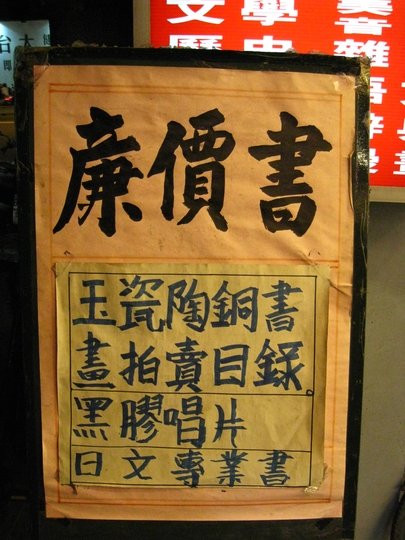 文學
歷史
廉價書
玉瓷陶銅書
畫拍賣目錄。
黑膠唱片
日文專業書